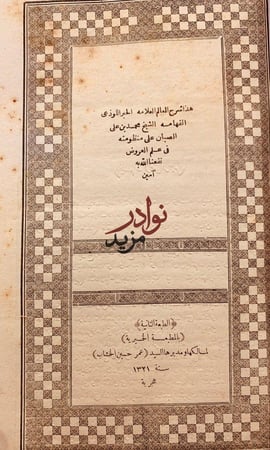 هذا شرح العالم العلامه الحبر اللوذعى
الفهامه الشيخ محمد بن على
الصبان على منظومته
فى علم العروض
نفعنا الله به
آمين
نوادر
مزيد
﴿الطبعة الثانية﴾
(بالمطبعة الخيرية)
لمالكها ومديرها السيد (عمر حسين الخشاب)
سنة ١٣٢١
هجرية